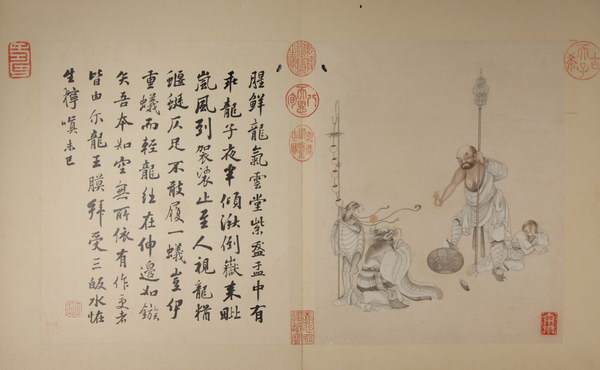 腥鮮龍氣雲堂紫盌盂中有
乖龍子夜半傾湫倒嶽来毗
嵐風到袈裟止至人視龍猶
蝘蜓仄足不敢履一蟻豈伊
重蟻而輕龍住在伸邊如鏃
矢吾本如空無所依有作更者
皆由尔龍王膜拜受三皈水怪
生獰嗔未已